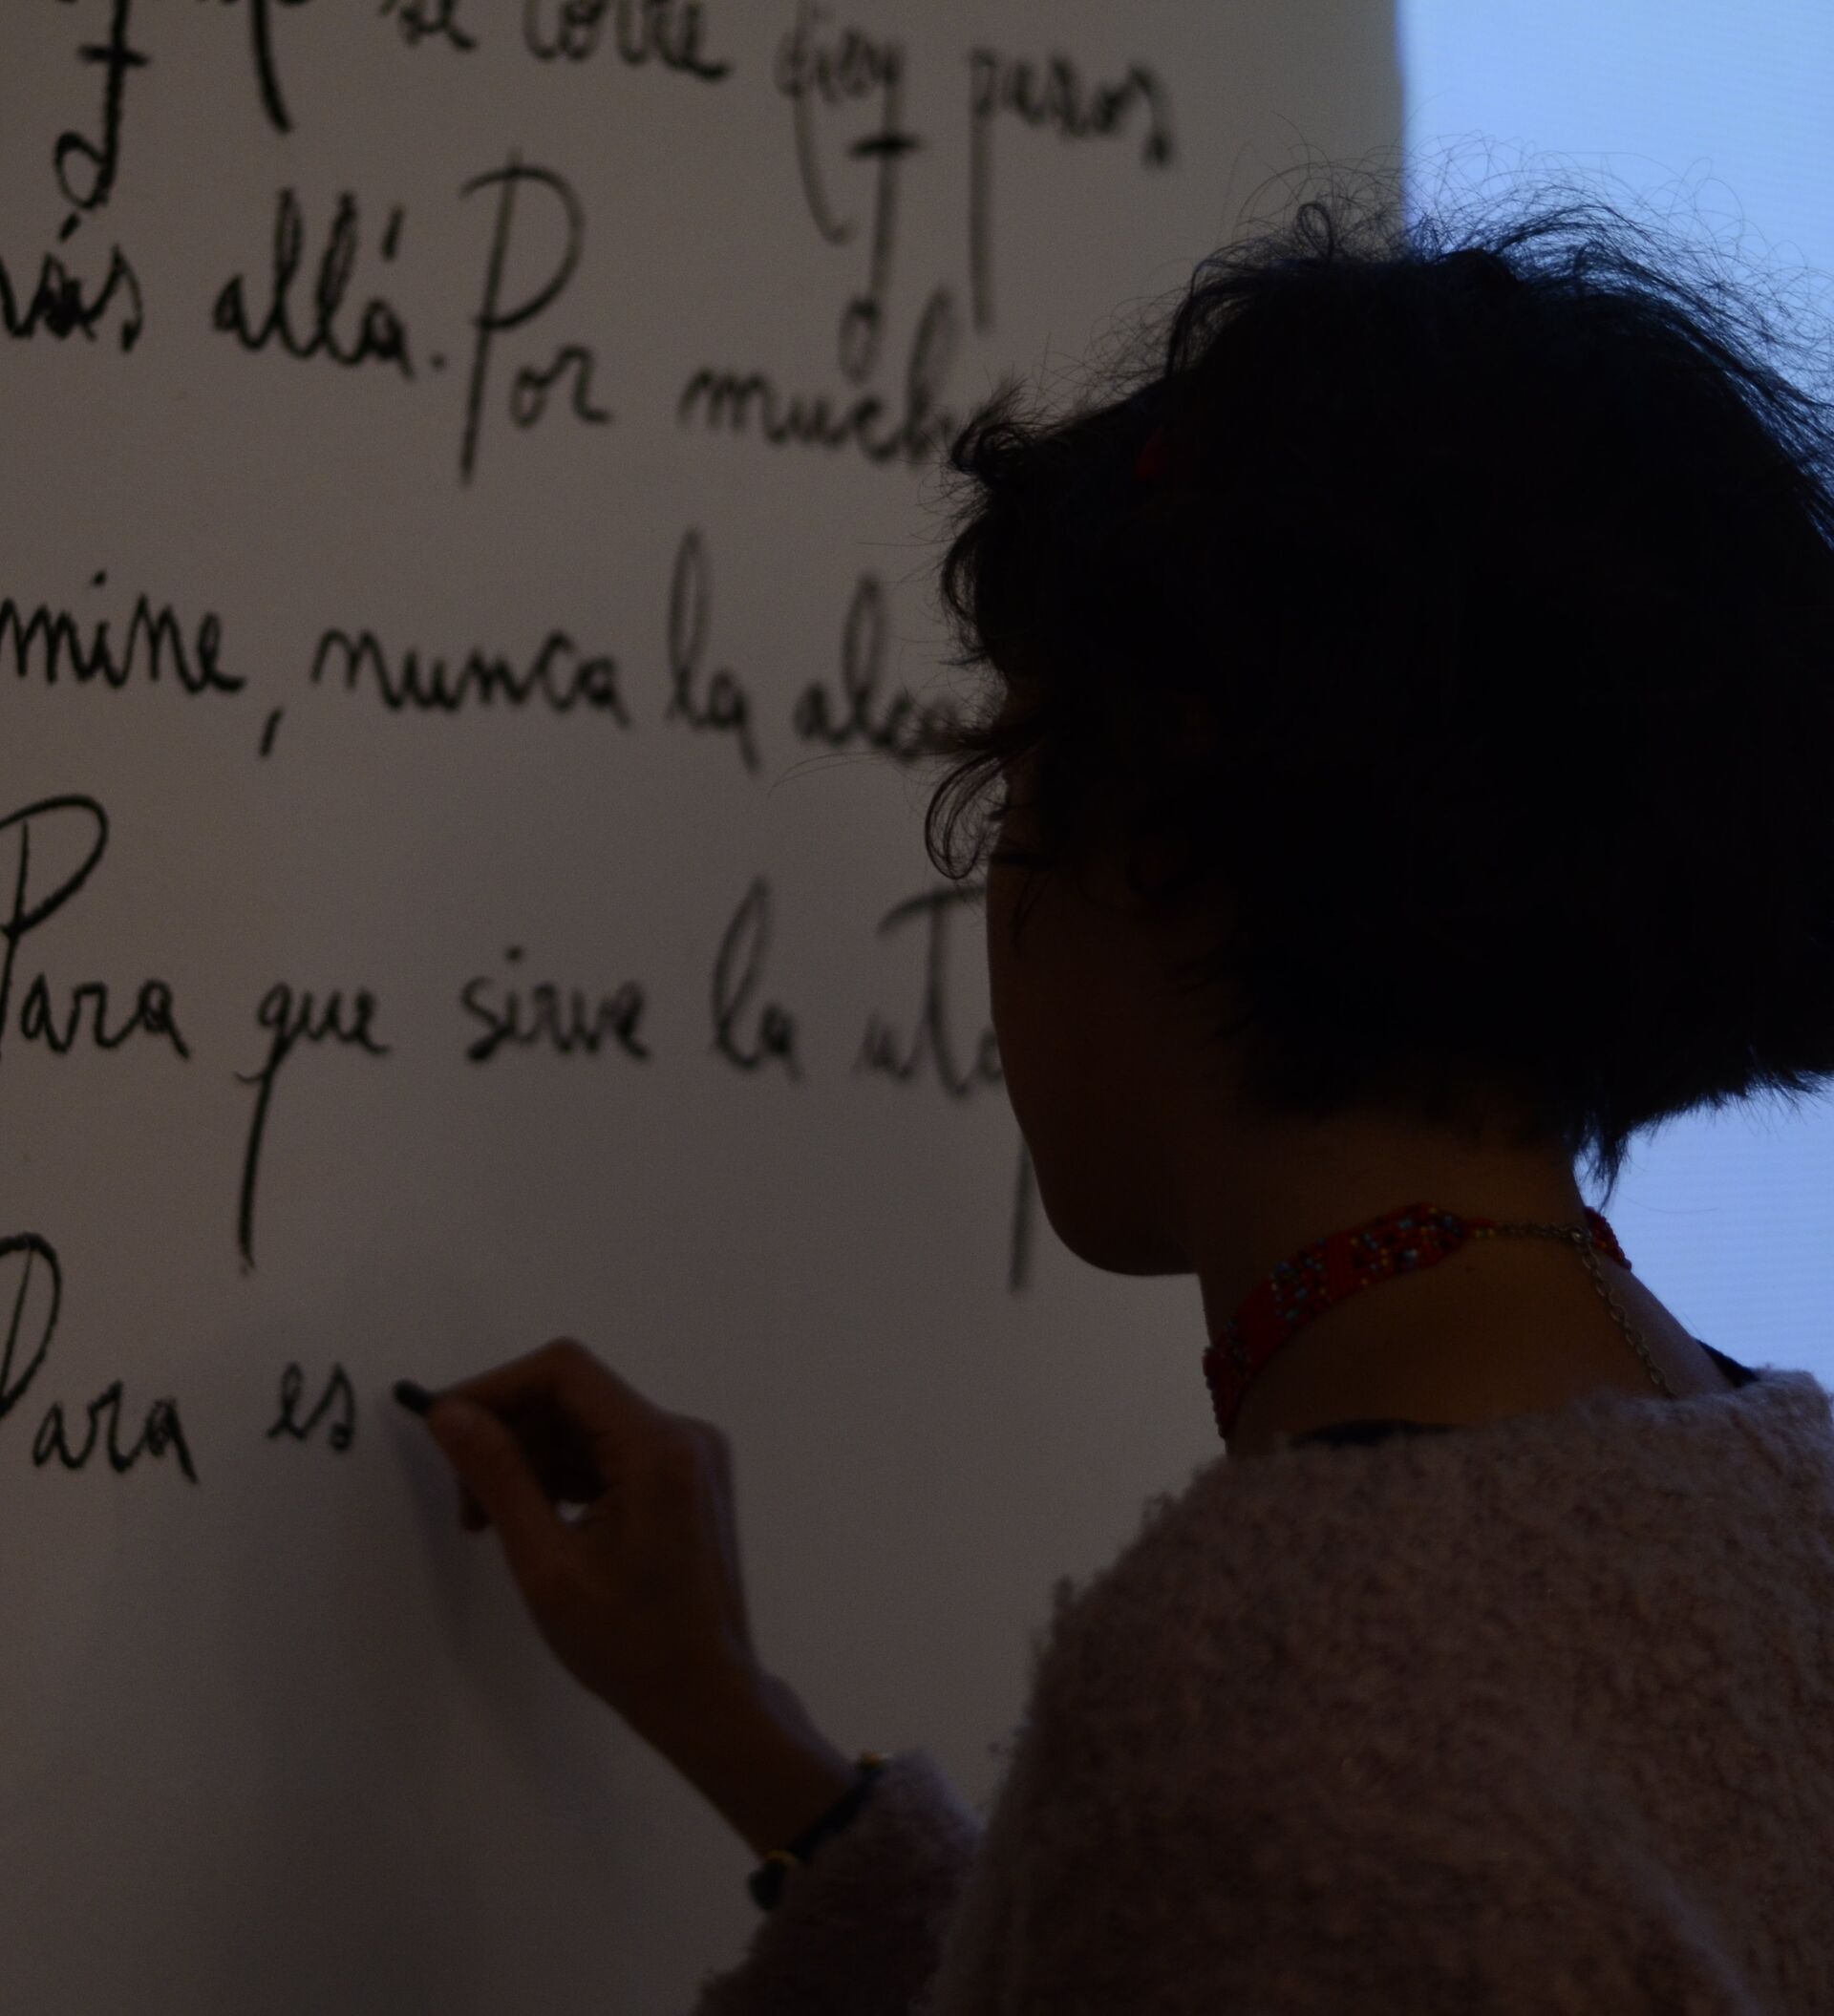 se corre diez pasos
más allá. Por much
mine, nunca la alca
Para que sirve la utop
Para es